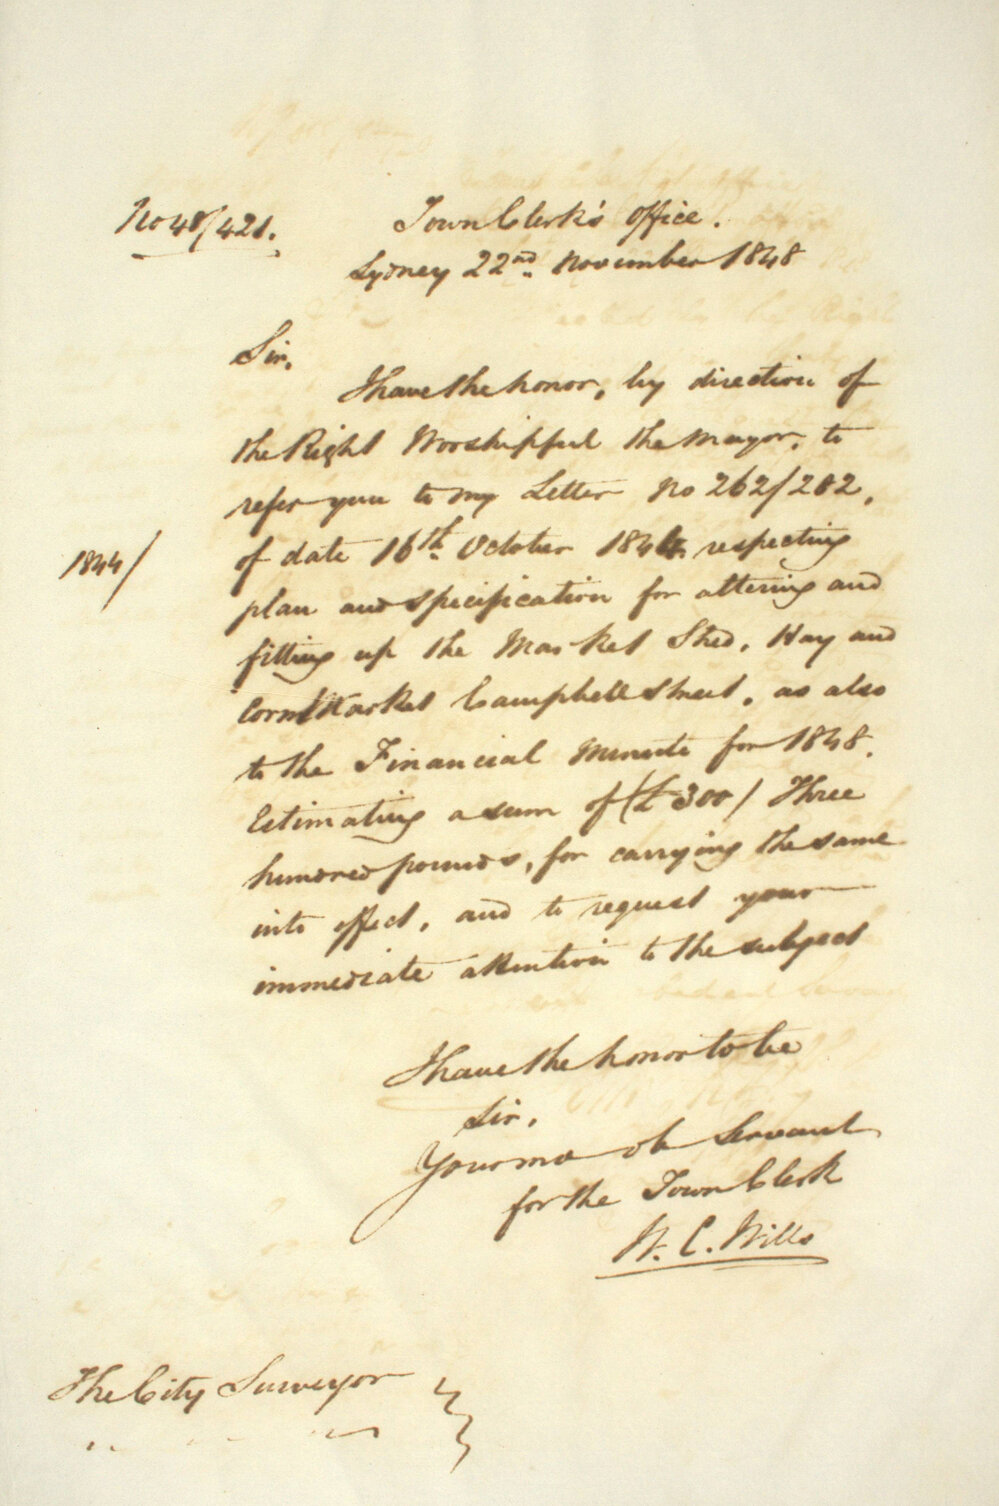 No 48/421.
Town Clerk's Office.
Sydney 22nd. November 1848
Sir,
I have the honor, by direction of
the Right Worshipful the Mayor, to
refer you to my Letter No 262/282,
of date 16th. October 184 respecting
1844/
plan and specification for altering and
fitting up the Market Shed, Hay and
Corn Market Campbell Street, as also
to the Financial Minute for 1848.
Estimating a sum of (£300/ Three
hundred pounds, for carrying the same
into effect, and to request your
immediate attention to the subject
I have the honor to be
Sir,
Your mo ob Servant
for the Town Clerk
W. C. Wills
The City Surveyor